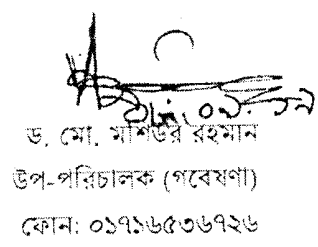 ড. মো. মশিউর রহমান
উপ-পরিচালক (গবেষণা)
ফোন: ০১৭১৬৫৩৬৭২৬